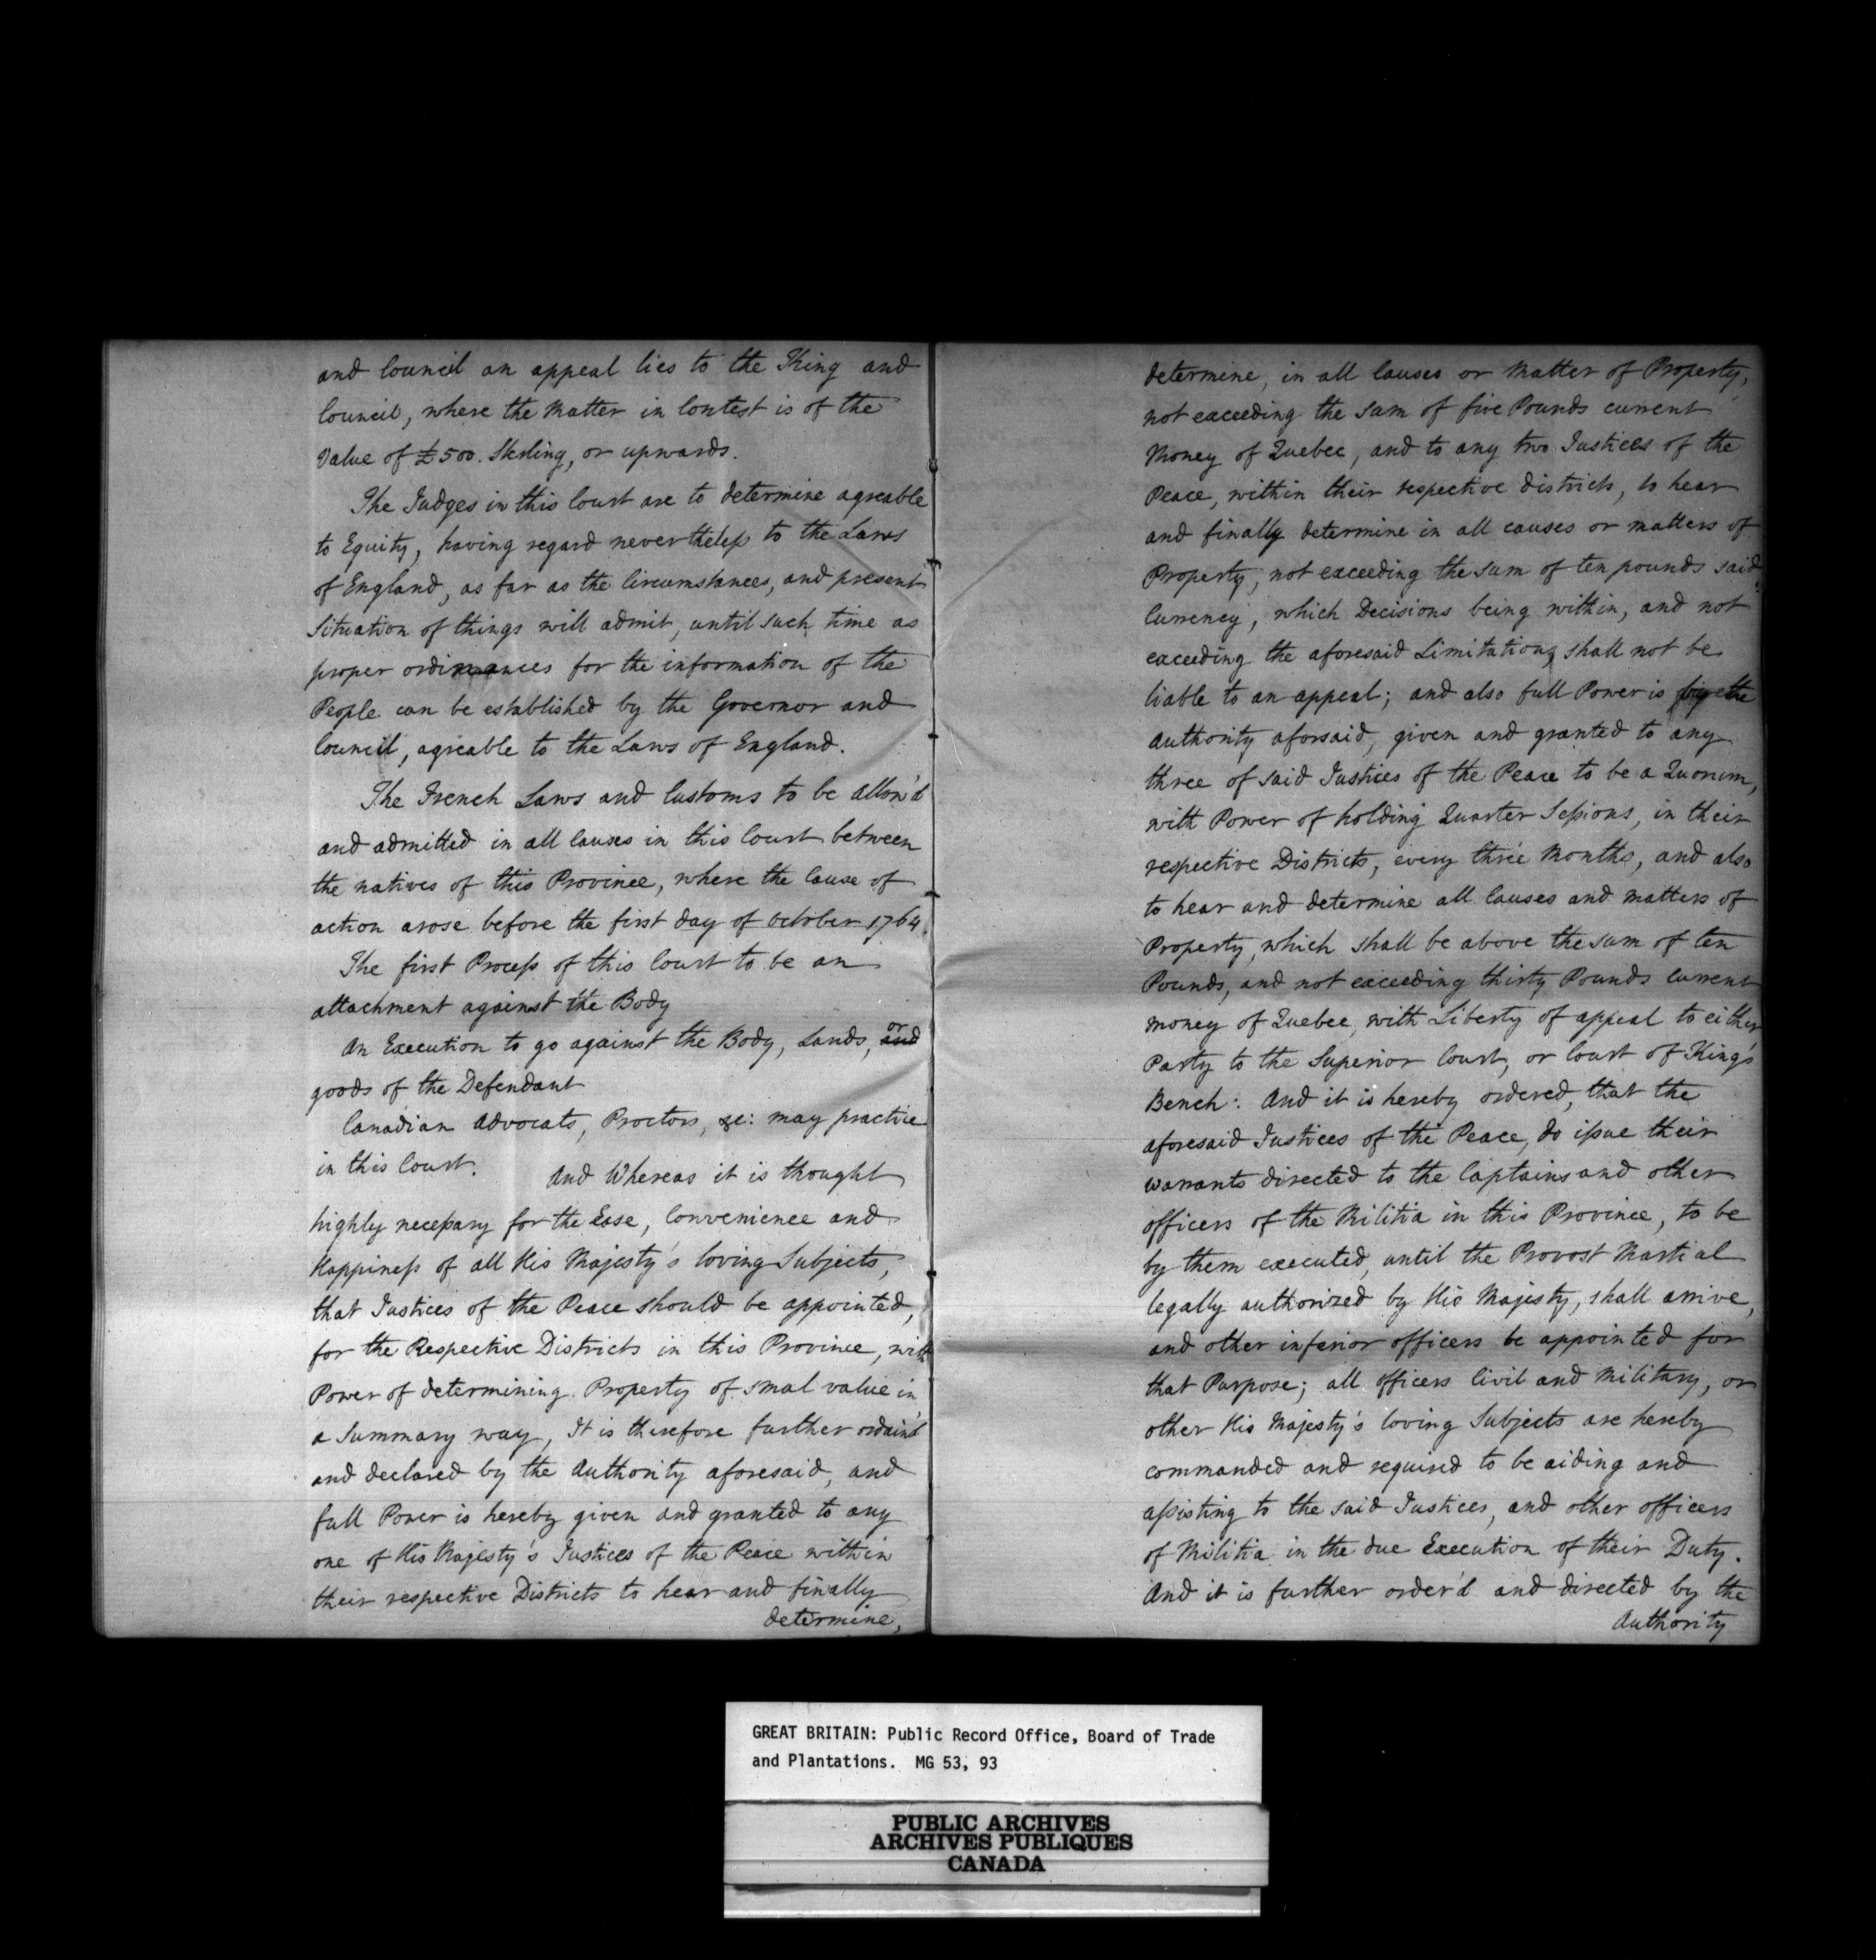 and Council an appeal lies to the King and
Council, where the Matter in Contest is of the
Value of £500. Sterling, or upwards.
The Judges in this Court are to determine agreable
to Equity, having regard nevertheless to the Laws
of England, as far as the Circumstances, and present
Situation of things will admit, until such time as
proper ordinances for the information of the
People can be established by the Governor and
Council, agreable to the Laws of England.
The French Laws and Customs to be allow'd
and admitted in all Causes in this Court between
the natives of this Province, where the Cause of
action arose before the first day of October 1764.
The first Process of this Court to be an
attachment against the Body
An Execution to go against the Body, Lands, and or
goods of the Defendant
Canadian Advocats, Proctors, &c: may practice
in this Court. And Whereas it is thought
highly necessary for the Ease, Convenience and
Happiness of all His Majesty's loving Subjects,
that Justices of the Peace should be appointed,
for the Respective Districts in this Province, with
Power of determining Property of smal value in
a Summary way, It is therefore further ordain'd
and declared by the Authority aforesaid, and
full Power is hereby given and granted to any
one of His Majesty's Justices of the Peace within
their respective Districts to hear and finally
determine,
determine, in all Causes or Matter of Property,
not exceeding the sum of five Pounds current
Money of Quebec, and to any two Justices of the
Peace, within their respective districts, to hear
and finally determine in all causes or matters of
Property, not exceeding the sum of ten pounds said
Currency, which Decisions being within, and not
exceeding the aforesaid Limitations, shall not be
liable to an appeal; and also full Power is by the
Authority aforsaid, given and granted to any
three of said Justices of the Peace to be a Quorum,
with Power of holding Quarter Sessions, in their
respective Districts, every three Months, and also
to hear and determine all Causes and matters of
Property, which shall be above the sum of ten
Pounds, and not exceeding thirty Pounds current
money of Quebec, with Liberty of appeal to either
Party to the Superior Court, or Court of King's
Bench: And it is hereby ordered, that the
aforesaid Justices of the Peace, do issue their
warrants directed to the Captains and other
officers of the Militia in this Province, to be
by them executed, until the Provost Martial
legally authorized by His Majesty, shall arrive,
and other inferior officers be appointed for
that Purpose; all officers Civil and Military, or
other His Majesty's loving Subjects are hereby
commanded and required to be aiding and
assisting to the said Justices, and other officers
of Militia in the due Execution of their Duty.
And it is further order'd and directed by the
Authority
GREAT BRITAIN: Public Record Office, Board of Trade
and Plantations. MG 53, 93
PUBLIC ARCHIVES
ARCHIVES PUBLIQUES
CANADA